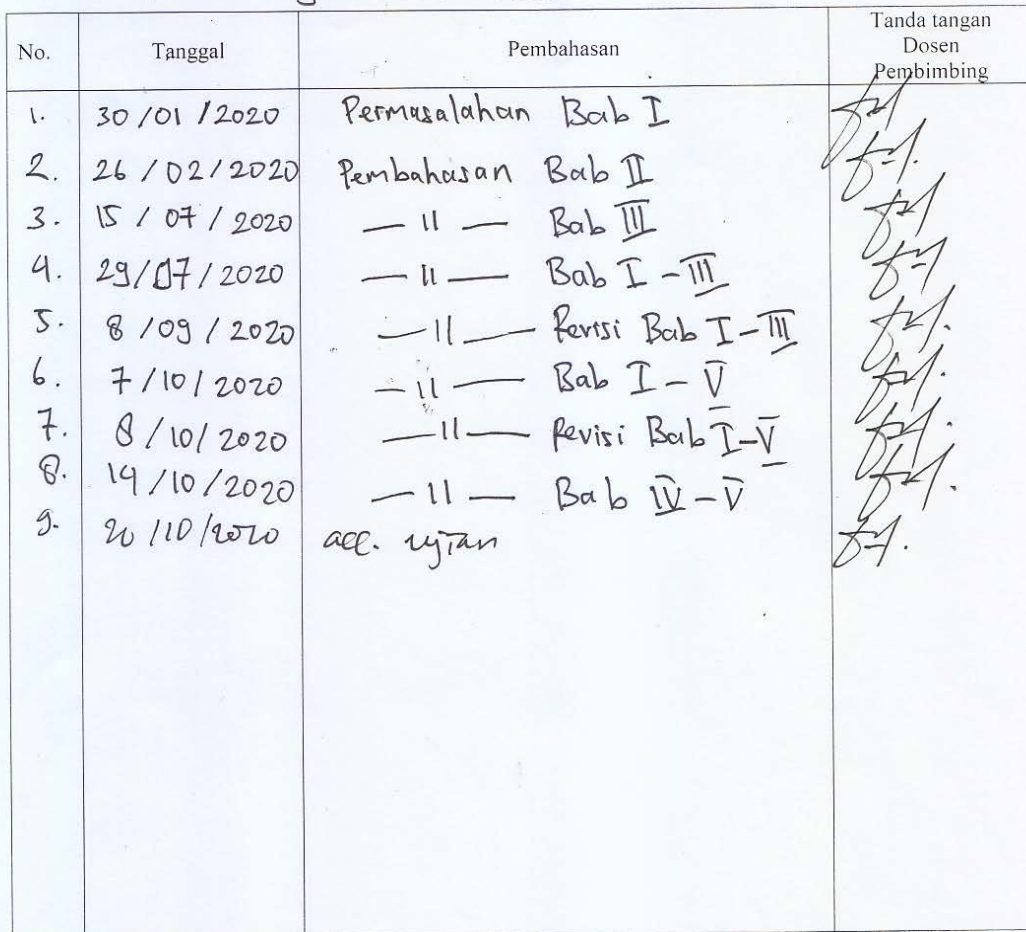 No. Tanggal Pembahasan Tanda tangan
Dosen
Pembimbing
1. 30/01/2020 Permasalahan Bab I
2. 26/02/2020 Pembahasan Bab II
3. 15/07/2020 — 11 — Bab III
4. 29/07/2020 — 11 — Bab I - III
5. 8/09/2020 — 11 — Revisi Bab I - III
6. 7/10/2020 — 11 — Bab I - V
7. 8/10/2020 — 11 — Revisi Bab I - V
8. 14/10/2020 — 11 — Bab IV - V
9. 20/10/2020 acc. ujian